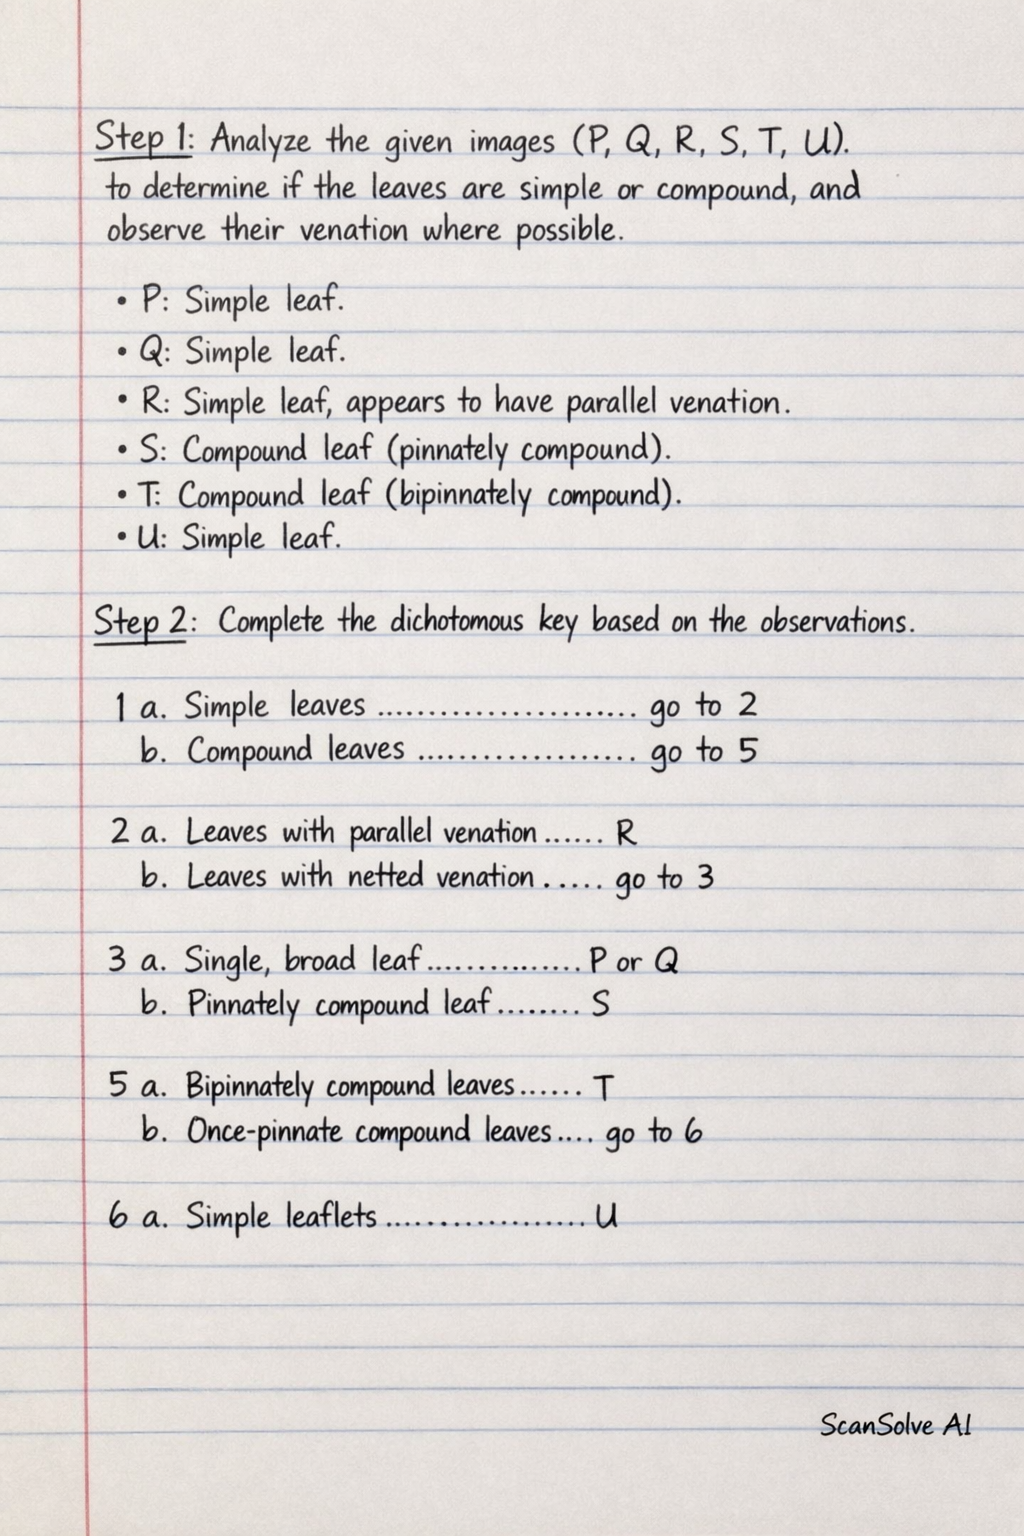 Step 1: Analyze the given images (P, Q, R, S, T, U).
to determine if the leaves are simple or compound, and
observe their venation where possible.
• P: Simple leaf.
• Q: Simple leaf.
• R: Simple leaf, appears to have parallel venation.
• S: Compound leaf (pinnately compound).
• T: Compound leaf (bipinnately compound).
• U: Simple leaf.
Step 2: Complete the dichotomous key based on the observations.
1 a. Simple leaves .......................... go to 2
b. Compound leaves ...................... go to 5
2 a. Leaves with parallel venation ...... R
b. Leaves with netted venation ..... go to 3
3 a. Single, broad leaf ............... P or Q
b. Pinnately compound leaf ........ S
5 a. Bipinnately compound leaves ...... T
b. Once-pinnate compound leaves .... go to 6
6 a. Simple leaflets .................... U
ScanSolve AI